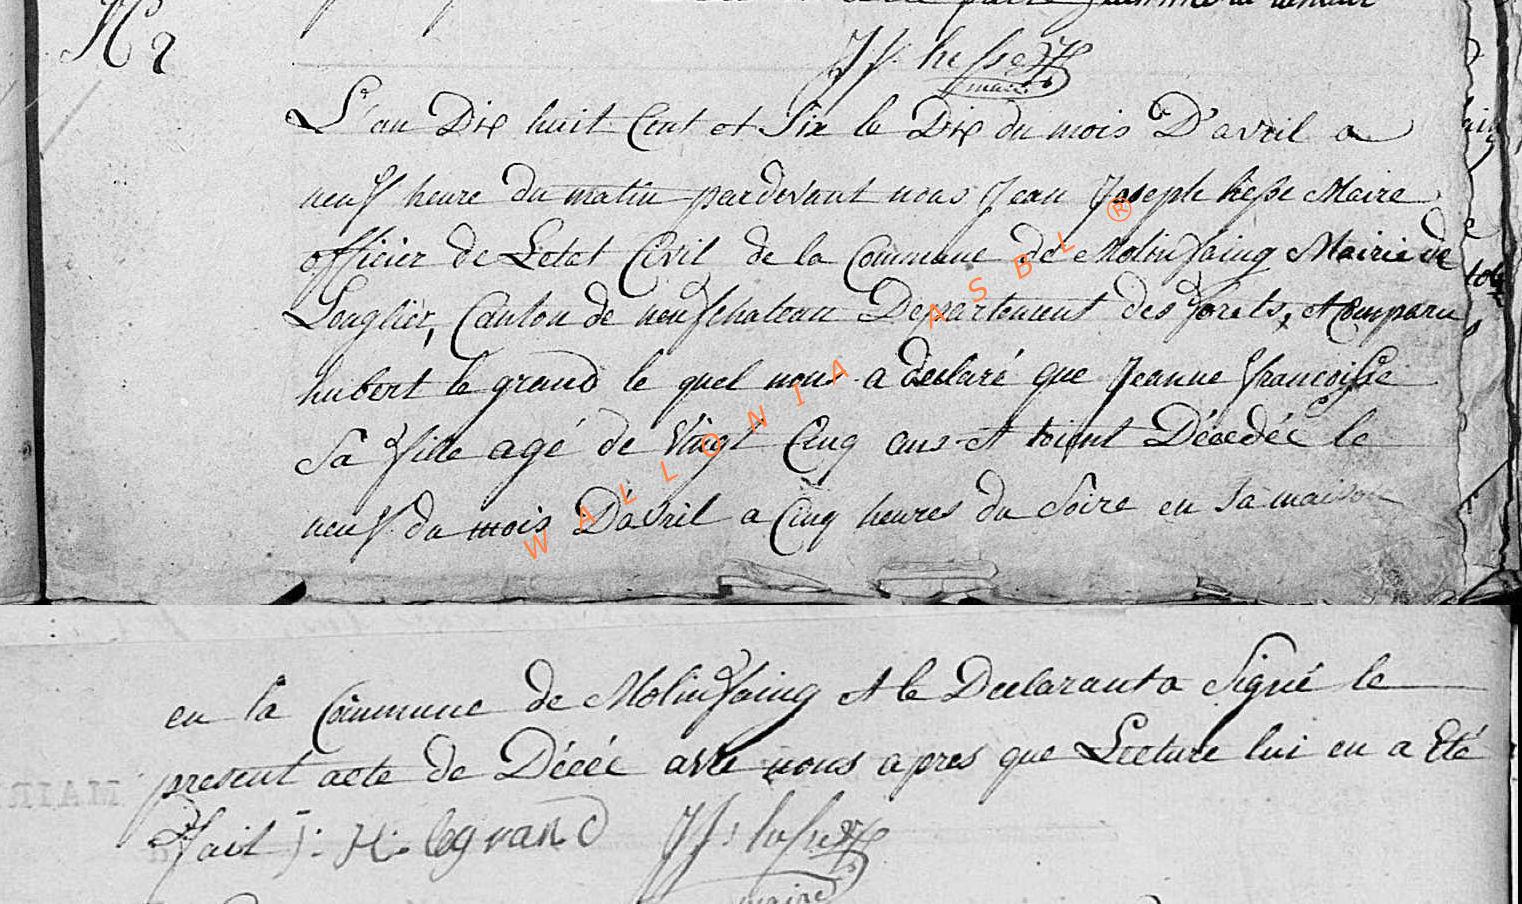 N 2
JJ: hesse
maire
L'an Dix huit Cent et Six le Dix du mois D'avril a
neuf heure du matin pardevant nous Jean Joseph hesse Maire
officier de Letat Civil de la Commune de Molinfaing Mairie de
Longlier, Canton de neufchateau Departement des forets, At Comparu
hubert le grand le quel nous a declaré que Jeanne françoise
Sa fille agé de Vingt Cinq ans Décédéé le
neuf du mois D'avril a Cinq heures du Soire en Sa maison
WALLONIA ASBL ®
en la Commune de Molinfaing Et le Declarant a Signé le
present acte de Décéé avec nous apres que Lecture lui en a Eté
fait J: H: legrand JJ: hesse
maire
MAIR